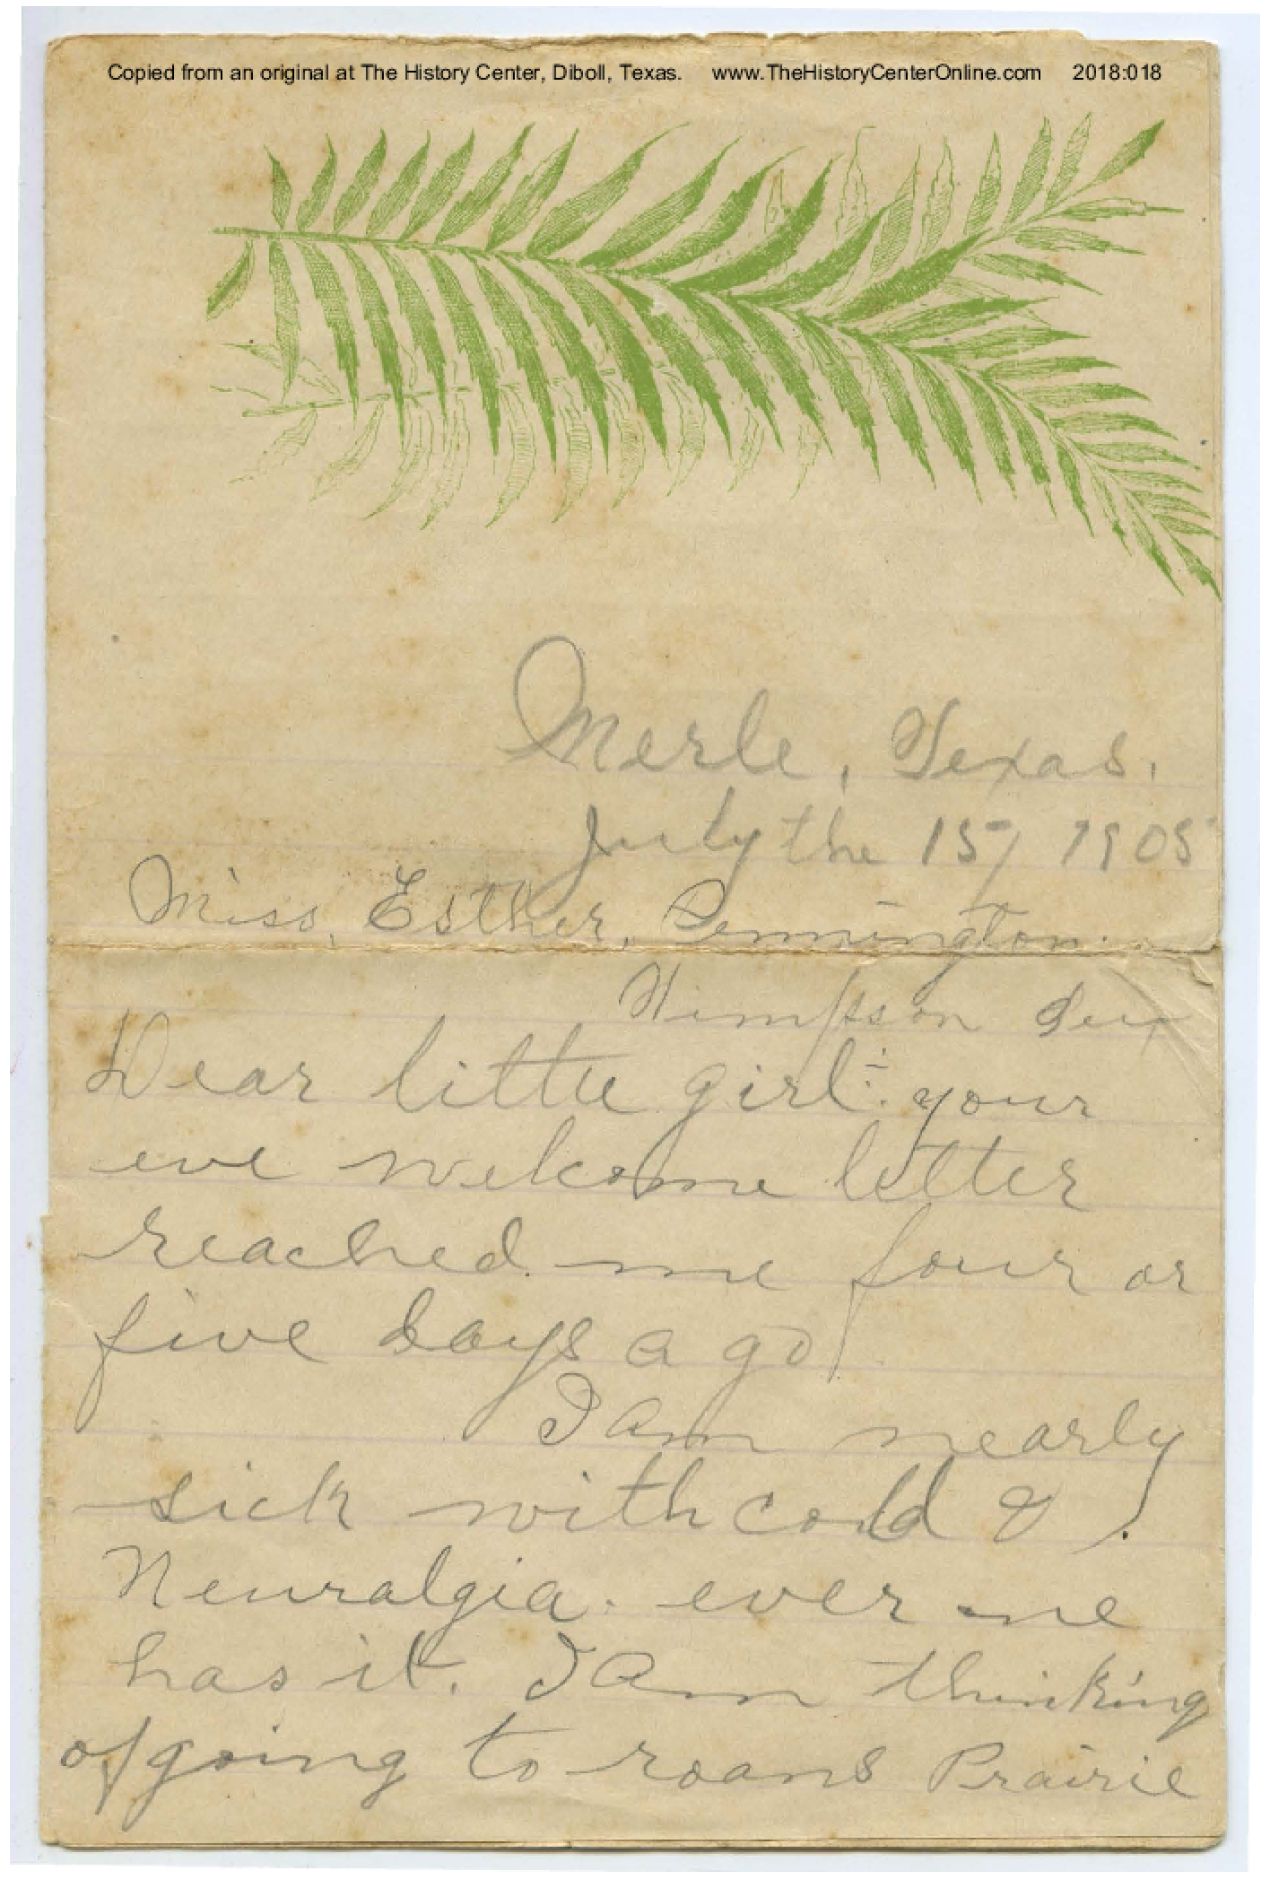 Copied from an original at The History Center, Diboll, Texas. www.TheHistoryCenterOnline.com 2018:018
Merle, Texas.
July the 15/ 1905
Miss, Esther, Pennington.
Dear little girl:- your
eve welcome letter
reached me four or
five days a go
I am nearly
sick with cold &
Neuralgia. ever one
has it. I am thinking
of going to roans Prairie